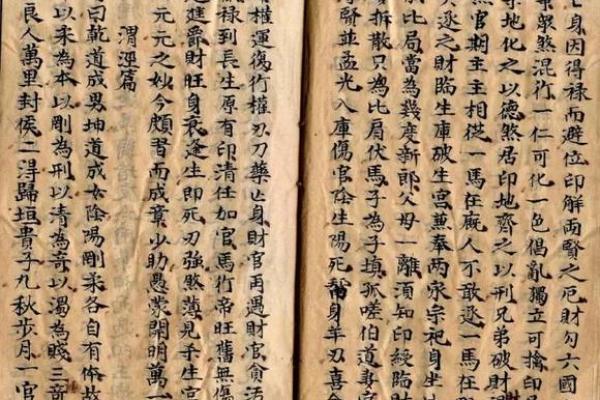 身因得禄而避位印解両賢之厄財勾六國
眾煞混行一仁可化一色倡亂獨立可擒印
地化之以德煞居印地齊之以刑兄弟破財
官期主主相從一馬在廐人不敢逐一馬在
逐之財臨生庫破生宮兼奉両家宗祀身坐
比局當為幾度新郎父母一離須知印綬臨財
拆散只為比肩伏馬子為子填孤嗟伯道妻宮
賢並孟光入庫傷官陰生陽死幫身羊刃喜
權運復行權刃刃藥亡身財官再遇財官貪污
祿到長生原有印清任如官馬行帝旺舊無傷
進爵財旺身衰逢生即死刃強煞薄見殺生官
元元之妙今頗習而成章少助愚蒙開明萬一
渭涇篇
曰乾道成男坤道成女陰陽剛柔各自有体故
以柔為本以剛為刑以清為奇以濁為賤三奇
良人萬里封侯二淂歸垣貴子九秋步月一官